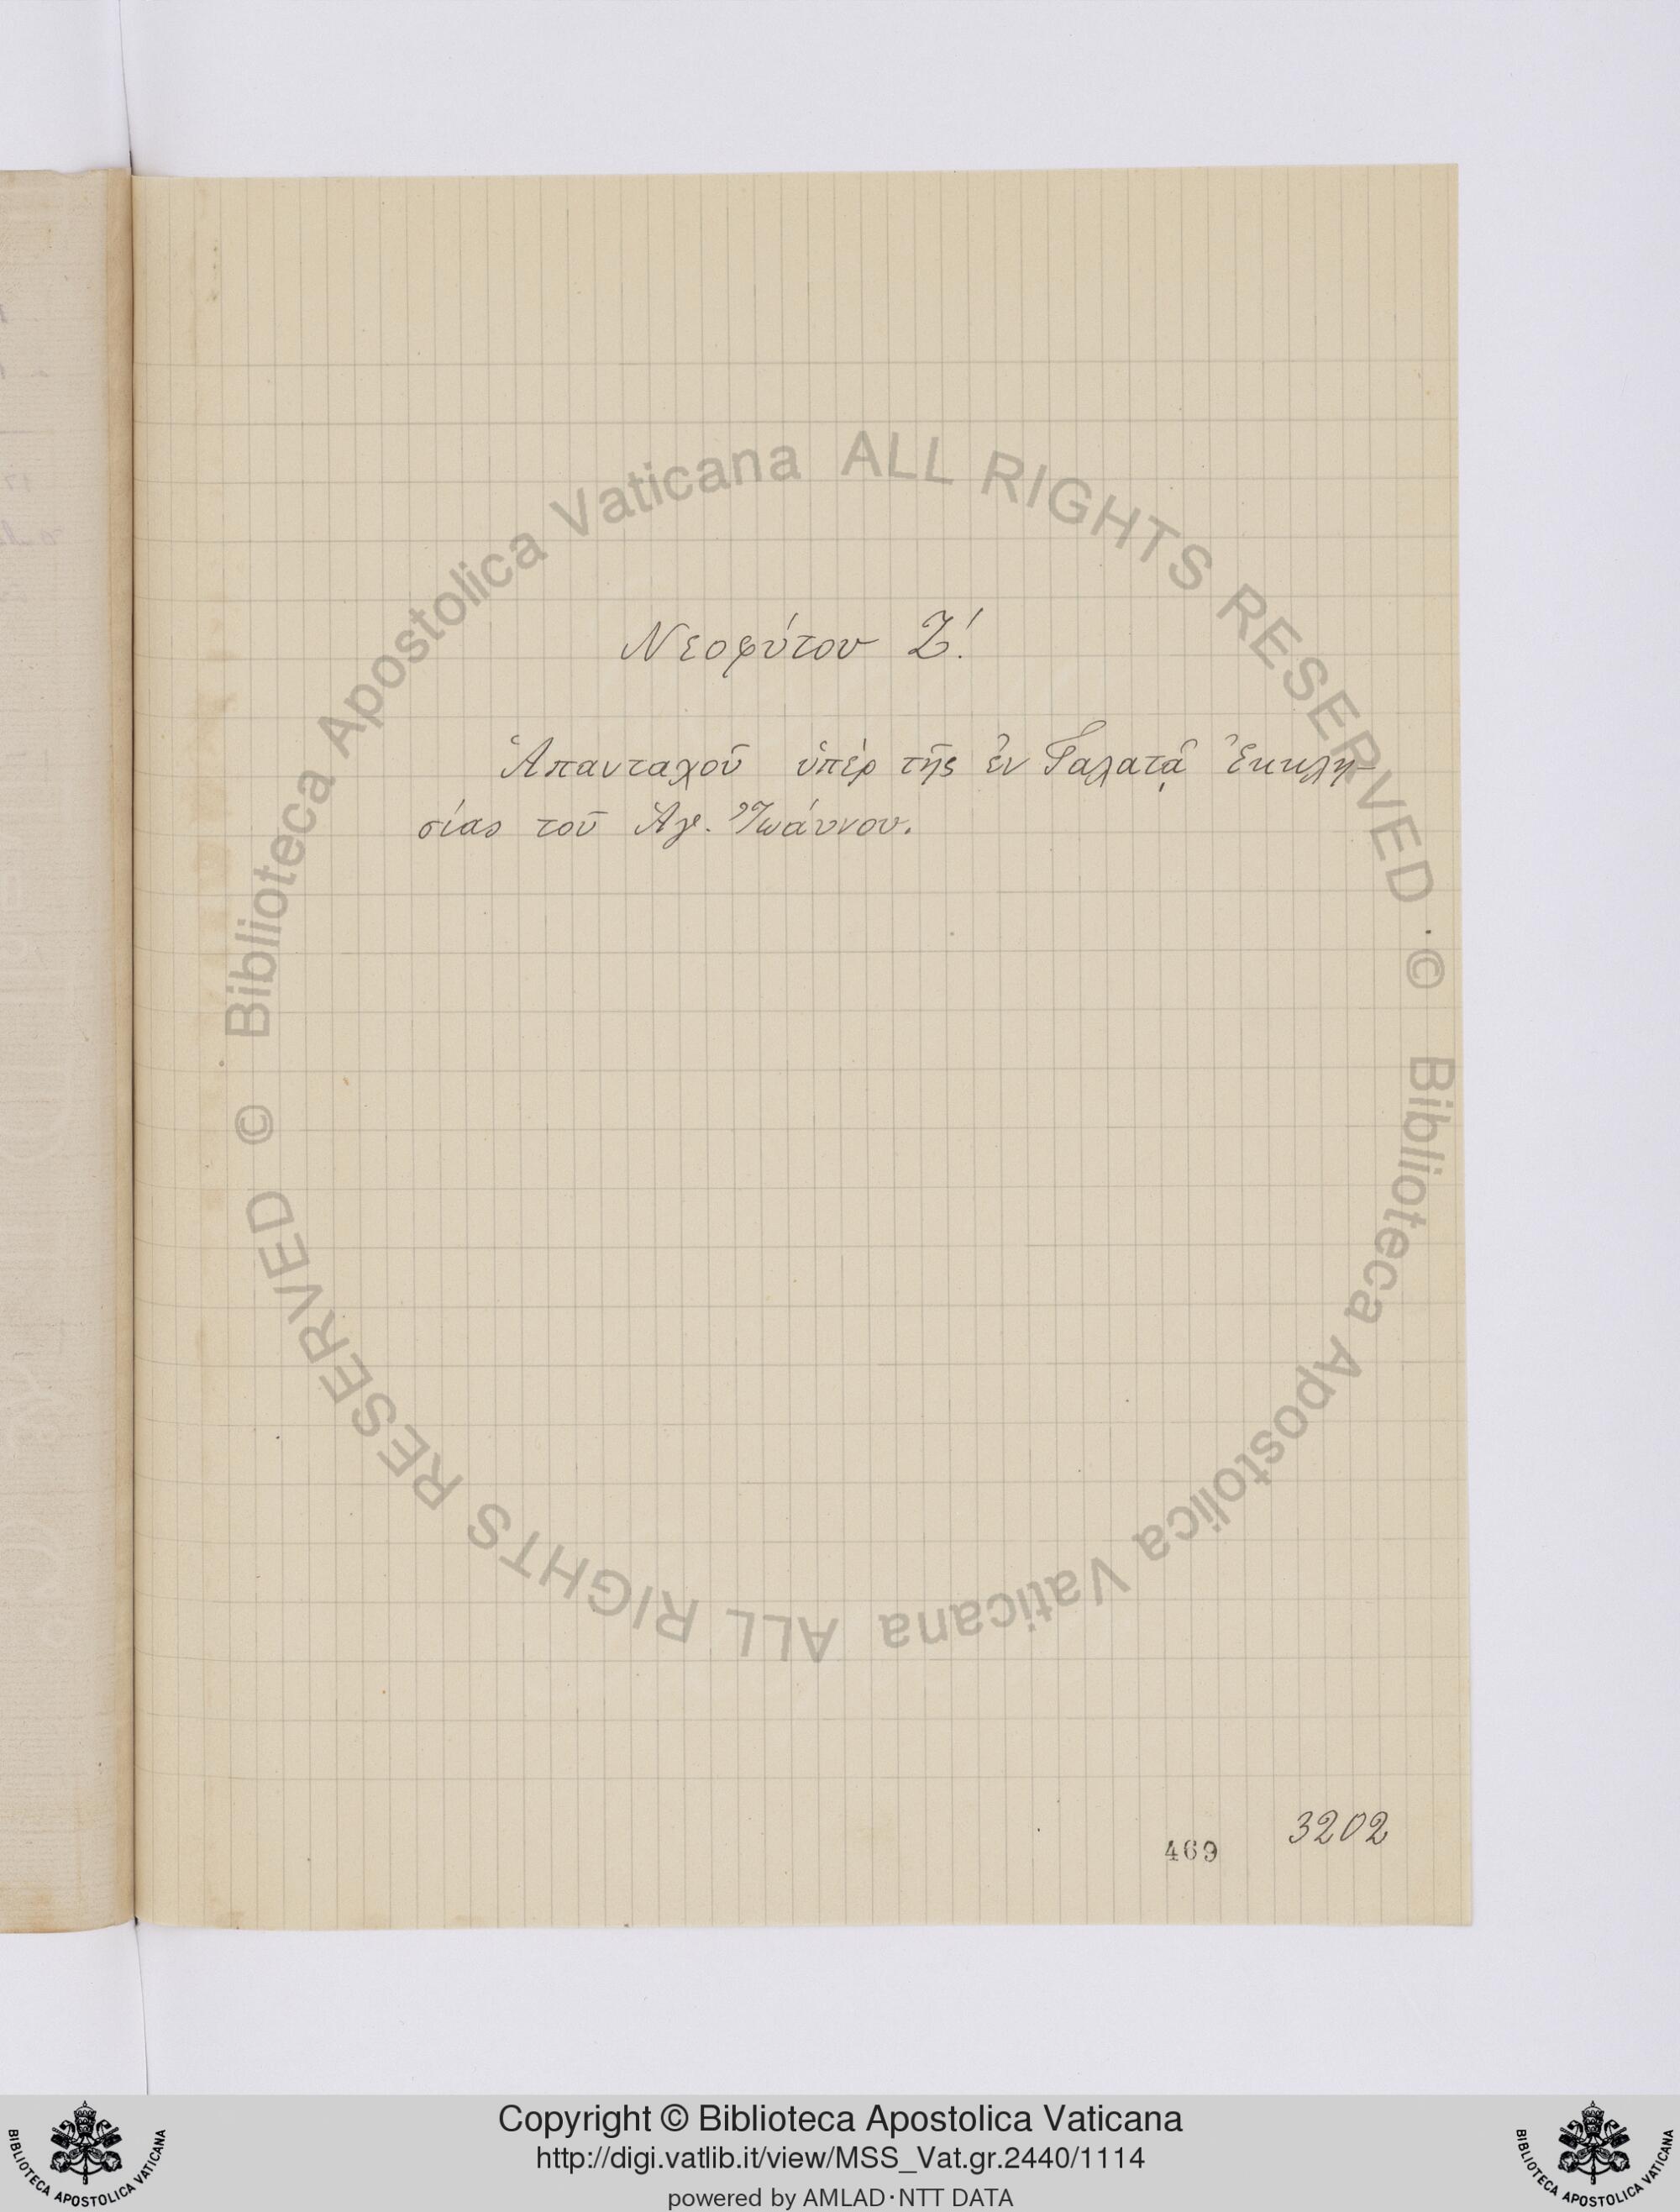 Νεοφύτου Ζ!
Ἁπανταχοῦ ὑπὲρ τῆς ἐν Γαλατᾷ Ἐκκλη-
σίας τοῦ Ἁγ. Ἰωάννου.
469 3202
© Biblioteca Apostolica Vaticana ALL RIGHTS RESERVED · © Biblioteca Apostolica Vaticana ALL RIGHTS RESERVED
Copyright © Biblioteca Apostolica Vaticana
http://digi.vatlib.it/view/MSS_Vat.gr.2440/1114
powered by AMLAD·NTT DATA
BIBLIOTECA APOSTOLICA VATICANA
BIBLIOTECA APOSTOLICA VATICANA